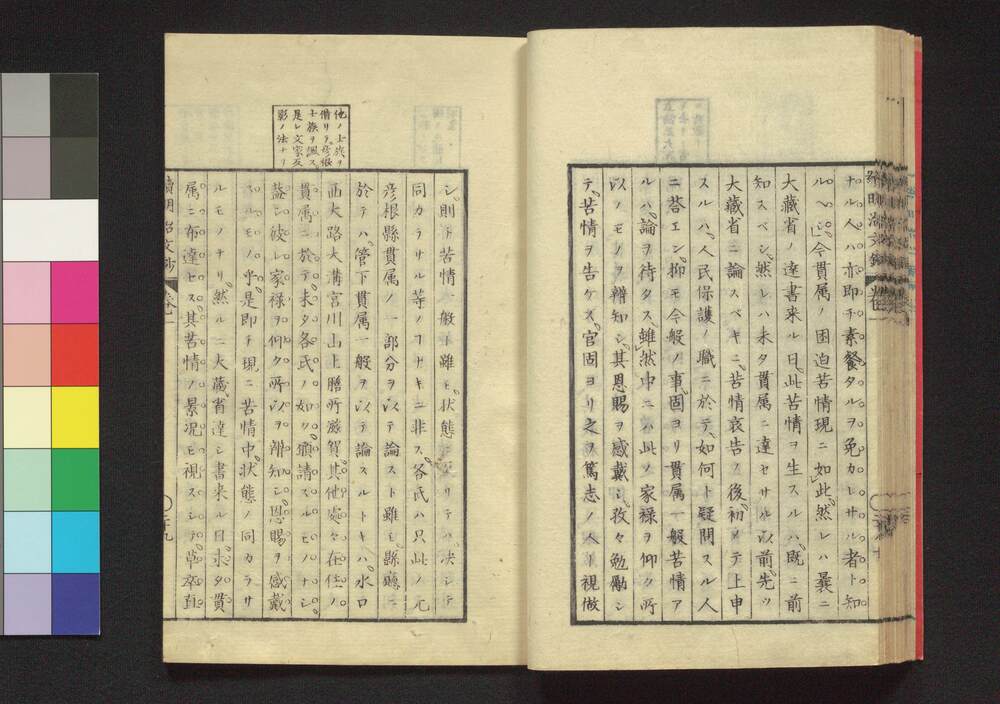 ナル人ハ亦即チ素餐タルヲ免カレサル者ト知
ルヘシ今貫属ノ困迫苦情現ニ如此然レハ曩ニ
大蔵省ノ達書来ル日此苦情ヲ生スルハ既ニ前
知スベシ然レハ未タ貫属ニ達セサル以前先ツ
大蔵省ニ論スベキニ苦情哀告ノ後初メテ上申
スルハ人民保護ノ職ニ於テ如何ト疑問スル人
ニ荅エン抑モ今般ノ事固ヨリ貫属一般苦情ア
ルハ論ヲ待タス雖然中ニハ此ノ家禄ヲ仰ク所
以ノモノヲ辨知シ其恩賜ヲ感戴シ孜々勉勵シ
テ苦情ヲ告ケス官固ヨリ之ヲ篤志ノ人ト視做
他ノ士族ヲ
借リテ彦根
士族ヲ諷ス
是レ文家反
影ノ法ナリ
シ則ト苦情一般ト雖モ状態ニ至リテハ决シテ
同カラサル等ノコナキニ非ス各氏ハ只此ノ元
彦根縣貫属ノ一部分ヲ以テ論スト雖モ縣廳ニ
於テハ管下貫属一般ヲ以テ論スルトキハ水口
西大路大溝宮川山上膳所滋賀其他處々在住ノ
貫属ニ於テ未タ各氏ノ如ク願請スルモノナシ
蓋シ彼レ家禄ヲ仰ク所以ヲ辨知シ恩賜ヲ感戴
スルモノ乎是即チ現ニ苦情中状態ノ同カラサ
ルモノナリ然ルニ大蔵省達シ書来ル日未タ貫
属ニ布達セス其苦情ノ景况モ視スシテ草卒直
續明治文抄 卷一